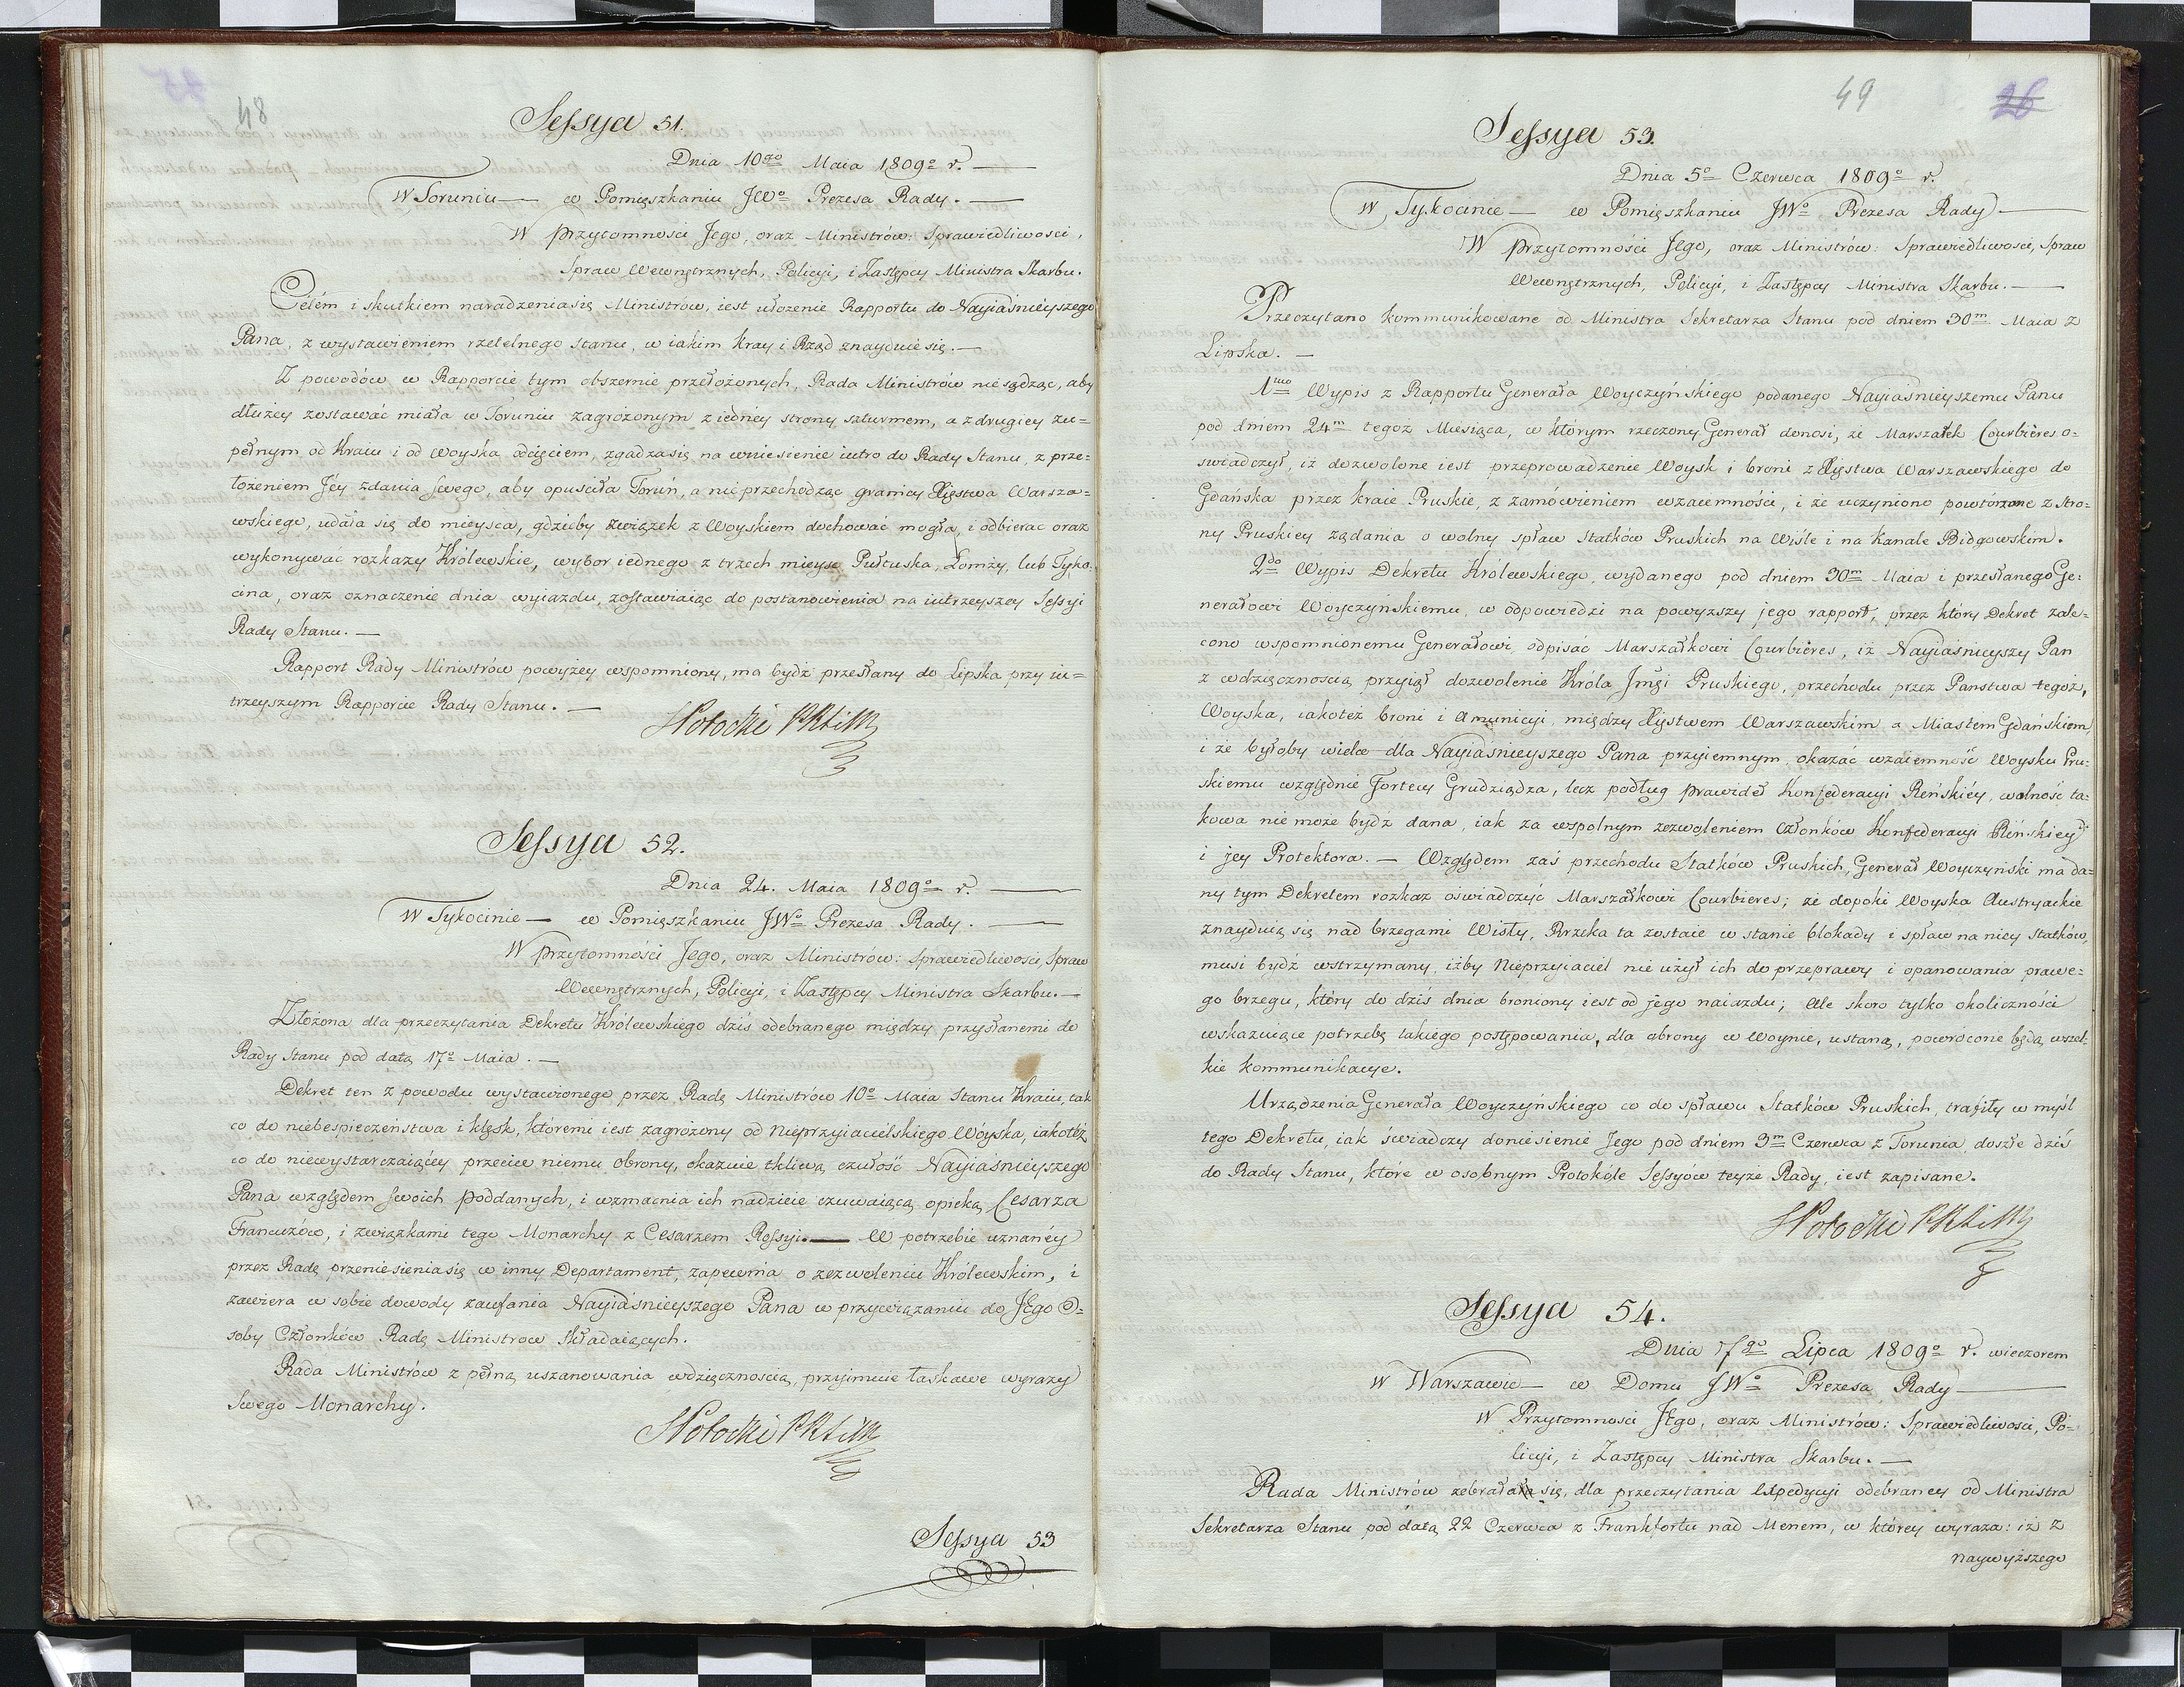 48
Sessya 51.
Dnia 10go Maia 1809o r. —
W Toruniu — w Pomięszkaniu JWo Prezesa Rady. —
W przytomności Jego, oraz Ministrów: Sprawiedliwości,
Spraw Wewnętrznych, Policyi, i Zastępcy Ministra Skarbu.
Celém i skutkiem naradzenia się Ministrów, iest ułożenie Rapportu do Nayiaśnieyszego
Pana, z wystawieniem rzetelnego stanu, w iakim kray i Rząd znayduie się. —
Z powodów w Rapporcie tym obszernie przełożonych, Rada Ministrów nie sądząc, aby
dłużey zostawać miała w Toruniu zagrożonym z iedney strony szturmem, a z drugiey zu=
pełnym od Kraiu i od woyska odcięciem, zgadza się na wniesienie iutro do Rady Stanu, z prze=
łożeniem Jéy zdania swego, aby opuściła Toruń, a nie przechodząc granicy Xięstwa Warsza=
wskiego, udała się do mieysca, gdzieby związek z Woyskiem dochować mogła, i odbierac oraz
wykonywać rozkazy Królewskie, wybor iednego z trzech mieysc Pułtuska, Łomży, lub Tyko=
cina, oraz oznaczenie dnia wyiazdu, zostawiaiąc do postanowienia na iutrzeyszey Sessyi
Rady Stanu. —
Rapport Rady Ministrów powyżey wspomniony, ma bydź przesłany do Lipska przy iu=
trzeyszym Rapporcie Rady Stanu. —
SPotocki PRSiM
Sessya 52.
Dnia 24. Maia 1809o r. —
W Tykocinie — w Pomięszkaniu JWo Prezesa Rady. —
W przytomności Jego, oraz Ministrów: Sprawiedliwości, Spraw
Wewnętrznych, Policyi, i Zastępcy Ministra Skarbu. —
Złożona dla przeczytania Dekretu Królewskiego dziś odebranego między przysłanemi do
Rady Stanu pod datą 17o Maia. —
Dekret ten z powodu wystawionego przez Radę Ministrów 10o Maia Stanu Kraiu, tak
co do niebespieczeństwa i klęsk, któremi iest zagrożony od Nieprzyiacielskiego Woyska, iakotéż
co do niewystarczaiącéy przeciw niemu obrony, okazuie tkliwą czułość Nayiaśnieyszego
Pana względem swoich poddanych, i wzmacnia ich nadzieie czuwaiącą opieką Cesarza
Francuzów, i związkami tego Monarchy z Cesarzem Rossyi. — W potrzebie uznanéy
przez Radę przeniesienia się w inny Departament, zapewnia o zezwoleniu Królewskim, i
zawiera w sobie dowody zaufania Nayiaśnieyszego Pana w przywiązaniu do JEgo O=
soby Członków Radę Ministrow składaiących.
Rada Ministrów z pełną uszanowania wdzięcznością, przyimuie łaskawe wyrazy
Swego Monarchy.
SPotocki PRSiM
Sessya 53
49
26
Sessya 53.
Dnia 5o Czerwca 1809o r.
W Tykocinie — w Pomięszkaniu JWo Prezesa Rady —
W przytomności Jego, oraz Ministrów: Sprawiedliwości, Spraw
Wewnętrznych, Policyi, i Zastępcy Ministra Skarbu. —
Przeczytano kommunikowane od Ministra Sekretarza Stanu pod dniem 30m Maia z
Lipska. —
1mo Wypis z Rapportu Generała Woyczyńskiego podanego Nayiaśnieyszemu Panu
pod dniem 24m tegoż Miesiąca, w którym rzeczony Generał donosi, że Marszałek Courbieres o=
swiadczył, iż dozwolone iest przeprowadzenie Woysk i broni z Xięstwa Warszawskiego do
Gdańska przez kraie Pruskie, z zamówieniem wzaiemności, i że uczyniono powtórzone z Stro=
ny Pruskiey żądania o wolny spław Statków Pruskich na Wiśle i na Kanale Bidgowskim.
2do Wypis Dekretu Królewskiego, wydanego pod dniem 30m Maia i przesłanego Ge=
nerałowi Woyczyńskiemu, w odpowiedzi na powyższy jego rapport, przez który Dekret zale=
cono wspomnionemu Generałowi odpisać Marszałkowi Courbieres, iż Nayiaśnieyszy Pan
z wdzięcznoscią przyiął dozwolenie Króla Jmści Pruskiego, przechodu przez Panstwa tegoż,
Woyska, iakoteż broni i Amunicyi, między Xięstwem Warszawskim a Miastem Gdańskiem,
i że byłoby wiele dla Nayiaśnieyszego Pana przyiemnym, okazać wzaiemność Woysku Pru=
skiemu względnie Fortecy Grudziądza, lecz podług prawideł Konfederacyi Reńskiéy, wolność ta=
kowa nie może bydź dana, iak za wspolnym zezwoleniem członków Konfederacyi Réńskiéy
i jey Protektora. — Względem zaś przechodu Statków Pruskich, Generał Woyczyński ma da=
ny tym Dekretem rozkaz oświadczyć Marszałkowi Courbieres; że dopoki Woyska Austryackie
znayduią się nad brzegami Wisły, Rzeka ta zostaie w stanie blokady i spław na niey Statków,
musi bydź wstrzymany, iżby Nieprzyiaciel nie użył ich do przeprawy i opanowania prawe=
go brzegu, który do dziś dnia broniony iest od jego naiazdu; ale skoro tylko okoliczności
wskazuiące potrzebę takiego postępowania, dla obrony w Woynie, ustaną, powrócone będą wszel=
kie kommunikacye.
Urządzenia Generała Woyczyńskiego co do spławu Statków Pruskich, trafiły w myśl
tego Dekretu, iak świadczy doniesienie Jego pod dniem 3m Czerwca z Torunia doszłe dziś
do Rady Stanu, które w osobnym Protokóle Sessyów teyże Rady, iest zapisane.
SPotocki PRSiM
Sessya 54.
Dnia 7go Lipca 1809o r. wieczorem
W Warszawie — w Domu JWo Prezesa Rady —
W Przytomności JEgo, oraz Ministrów: Sprawiedliwości, Po=
licyi, i Zastępcy Ministra Skarbu. —
Rada Ministrów zebrała się, dla przeczytania Expedycyi odebraney od Ministra
Sekretarza Stanu pod datą 22 Czerwca z Frankfortu nad Menem, w którey wyraża: iż z
naywyższego